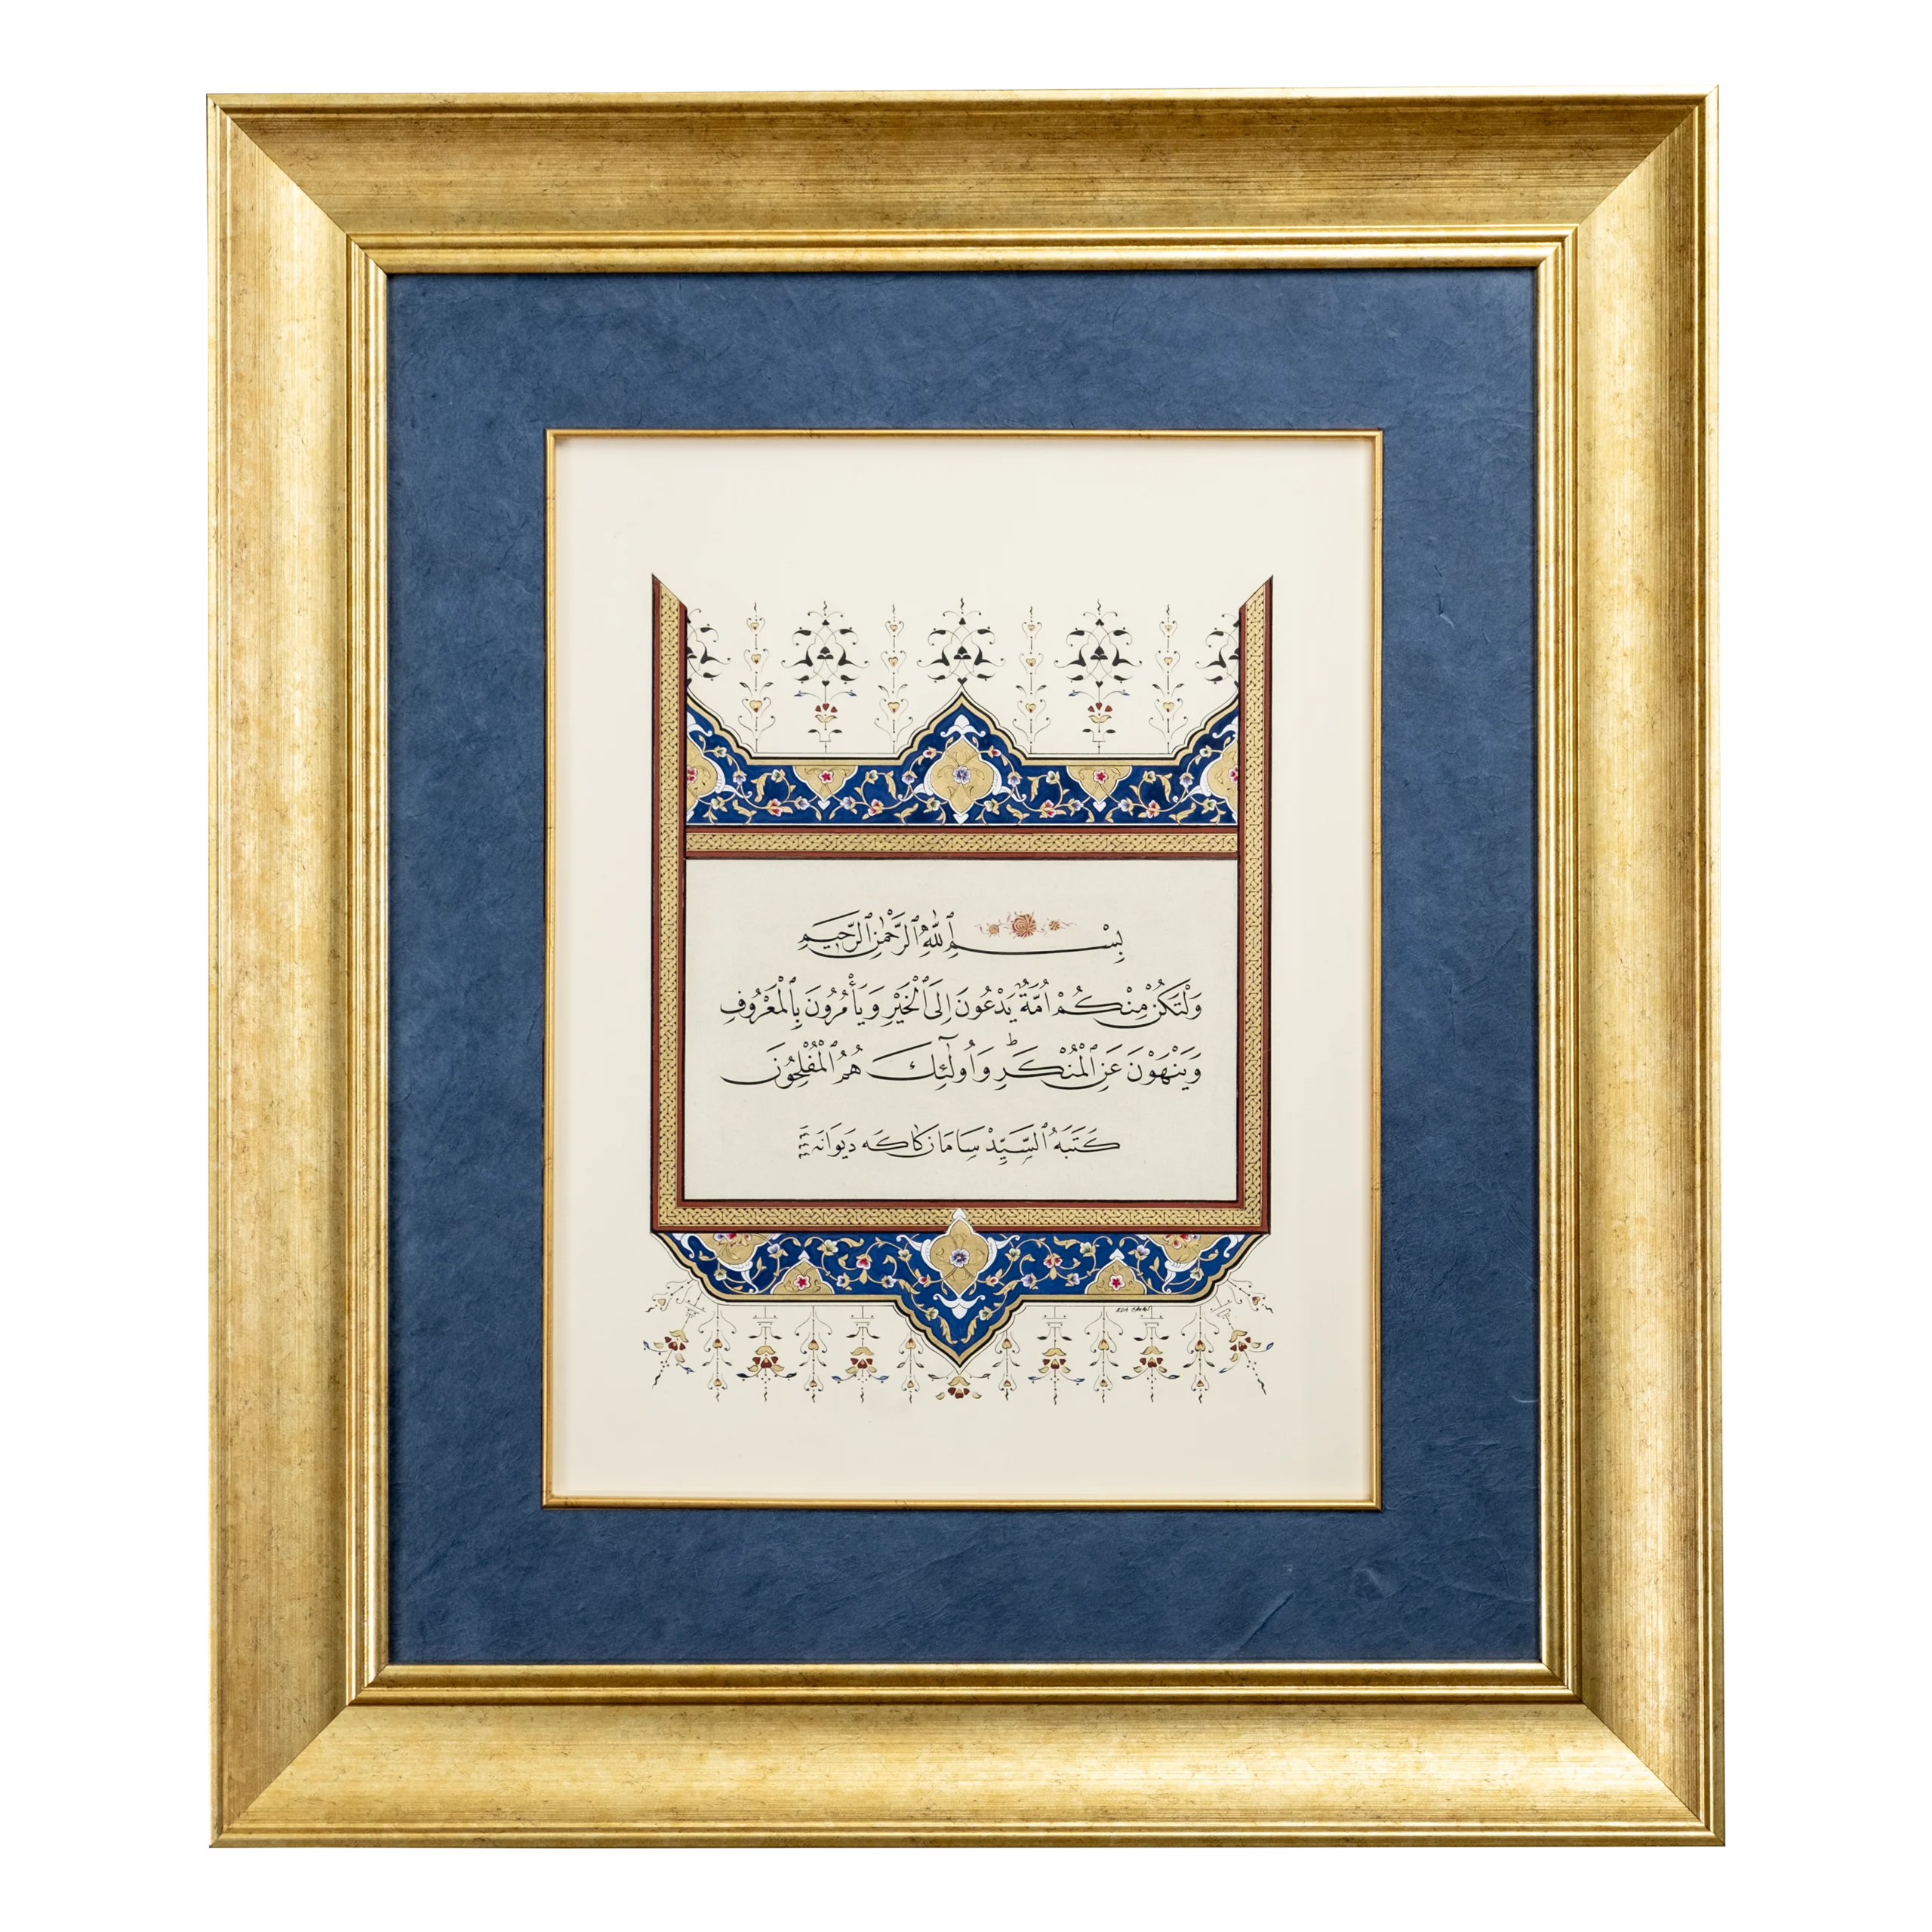 بِسْمِ ٱللّٰهِ ٱلرَّحْمٰنِ ٱلرَّحِيمِ
وَلْتَكُنْ مِنْكُمْ اُمَّةٌ يَدْعُونَ اِلَى ٱلْخَيْرِ وَيَأْمُرُونَ بِٱلْمَعْرُوفِ
وَيَنْهَوْنَ عَنِ ٱلْمُنْكَرِ ۭ وَاُولٰٓئِكَ هُمُ ٱلْمُفْلِحُونَ
كَتَبَهُ ٱلسَّيِّدْ سَامَان كَاكَه دَيوَانَه